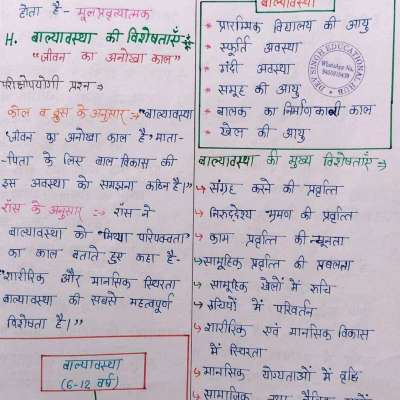 होता है - मूलप्रवृत्यात्मक
H. बाल्यावस्था की विशेषताएँ
"जीवन का अनोखा काल"
परीक्षोपयोगी प्रश्न →
कोल व ब्रुस के अनुसार :→ "बाल्यावस्था
जीवन का अनोखा काल है, माता-
पिता के लिए बाल विकास की
इस अवस्था को समझना कठिन है।"
रॉस के अनुसार :→ रॉस ने
बाल्यावस्था को "मिथ्या परिपक्वता"
का काल बताते हुए कहा है-
"शारीरिक और मानसिक स्थिरता
बाल्यावस्था की सबसे महत्वपूर्ण
विशेषता है।"
बाल्यावस्था
(6-12 वर्ष)
बाल्यावस्था
* प्रारम्भिक विद्यालय की आयु
* स्फूर्ति अवस्था
* गंदी अवस्था
* समूह की आयु
* बालक का निर्माणकारी काल
* खेल की आयु
DEV SINGH EDUCATIONAL HUB
WhatsApp No.
बाल्यावस्था की मुख्य विशेषताएँ →
↳ संग्रह करने की प्रवृत्ति
↳ निरुद्देश्य भ्रमण की प्रवृत्ति
↳ काम प्रवृत्ति की न्यूनता
↳ सामूहिक प्रवृत्ति की प्रबलता
↳ सामूहिक खेलों में रुचि
↳ रुचियों में परिवर्तन
↳ शारीरिक एवं मानसिक विकास
में स्थिरता
↳ मानसिक योग्यताओं में वृद्धि
↳ सामाजिक तथा नैतिक